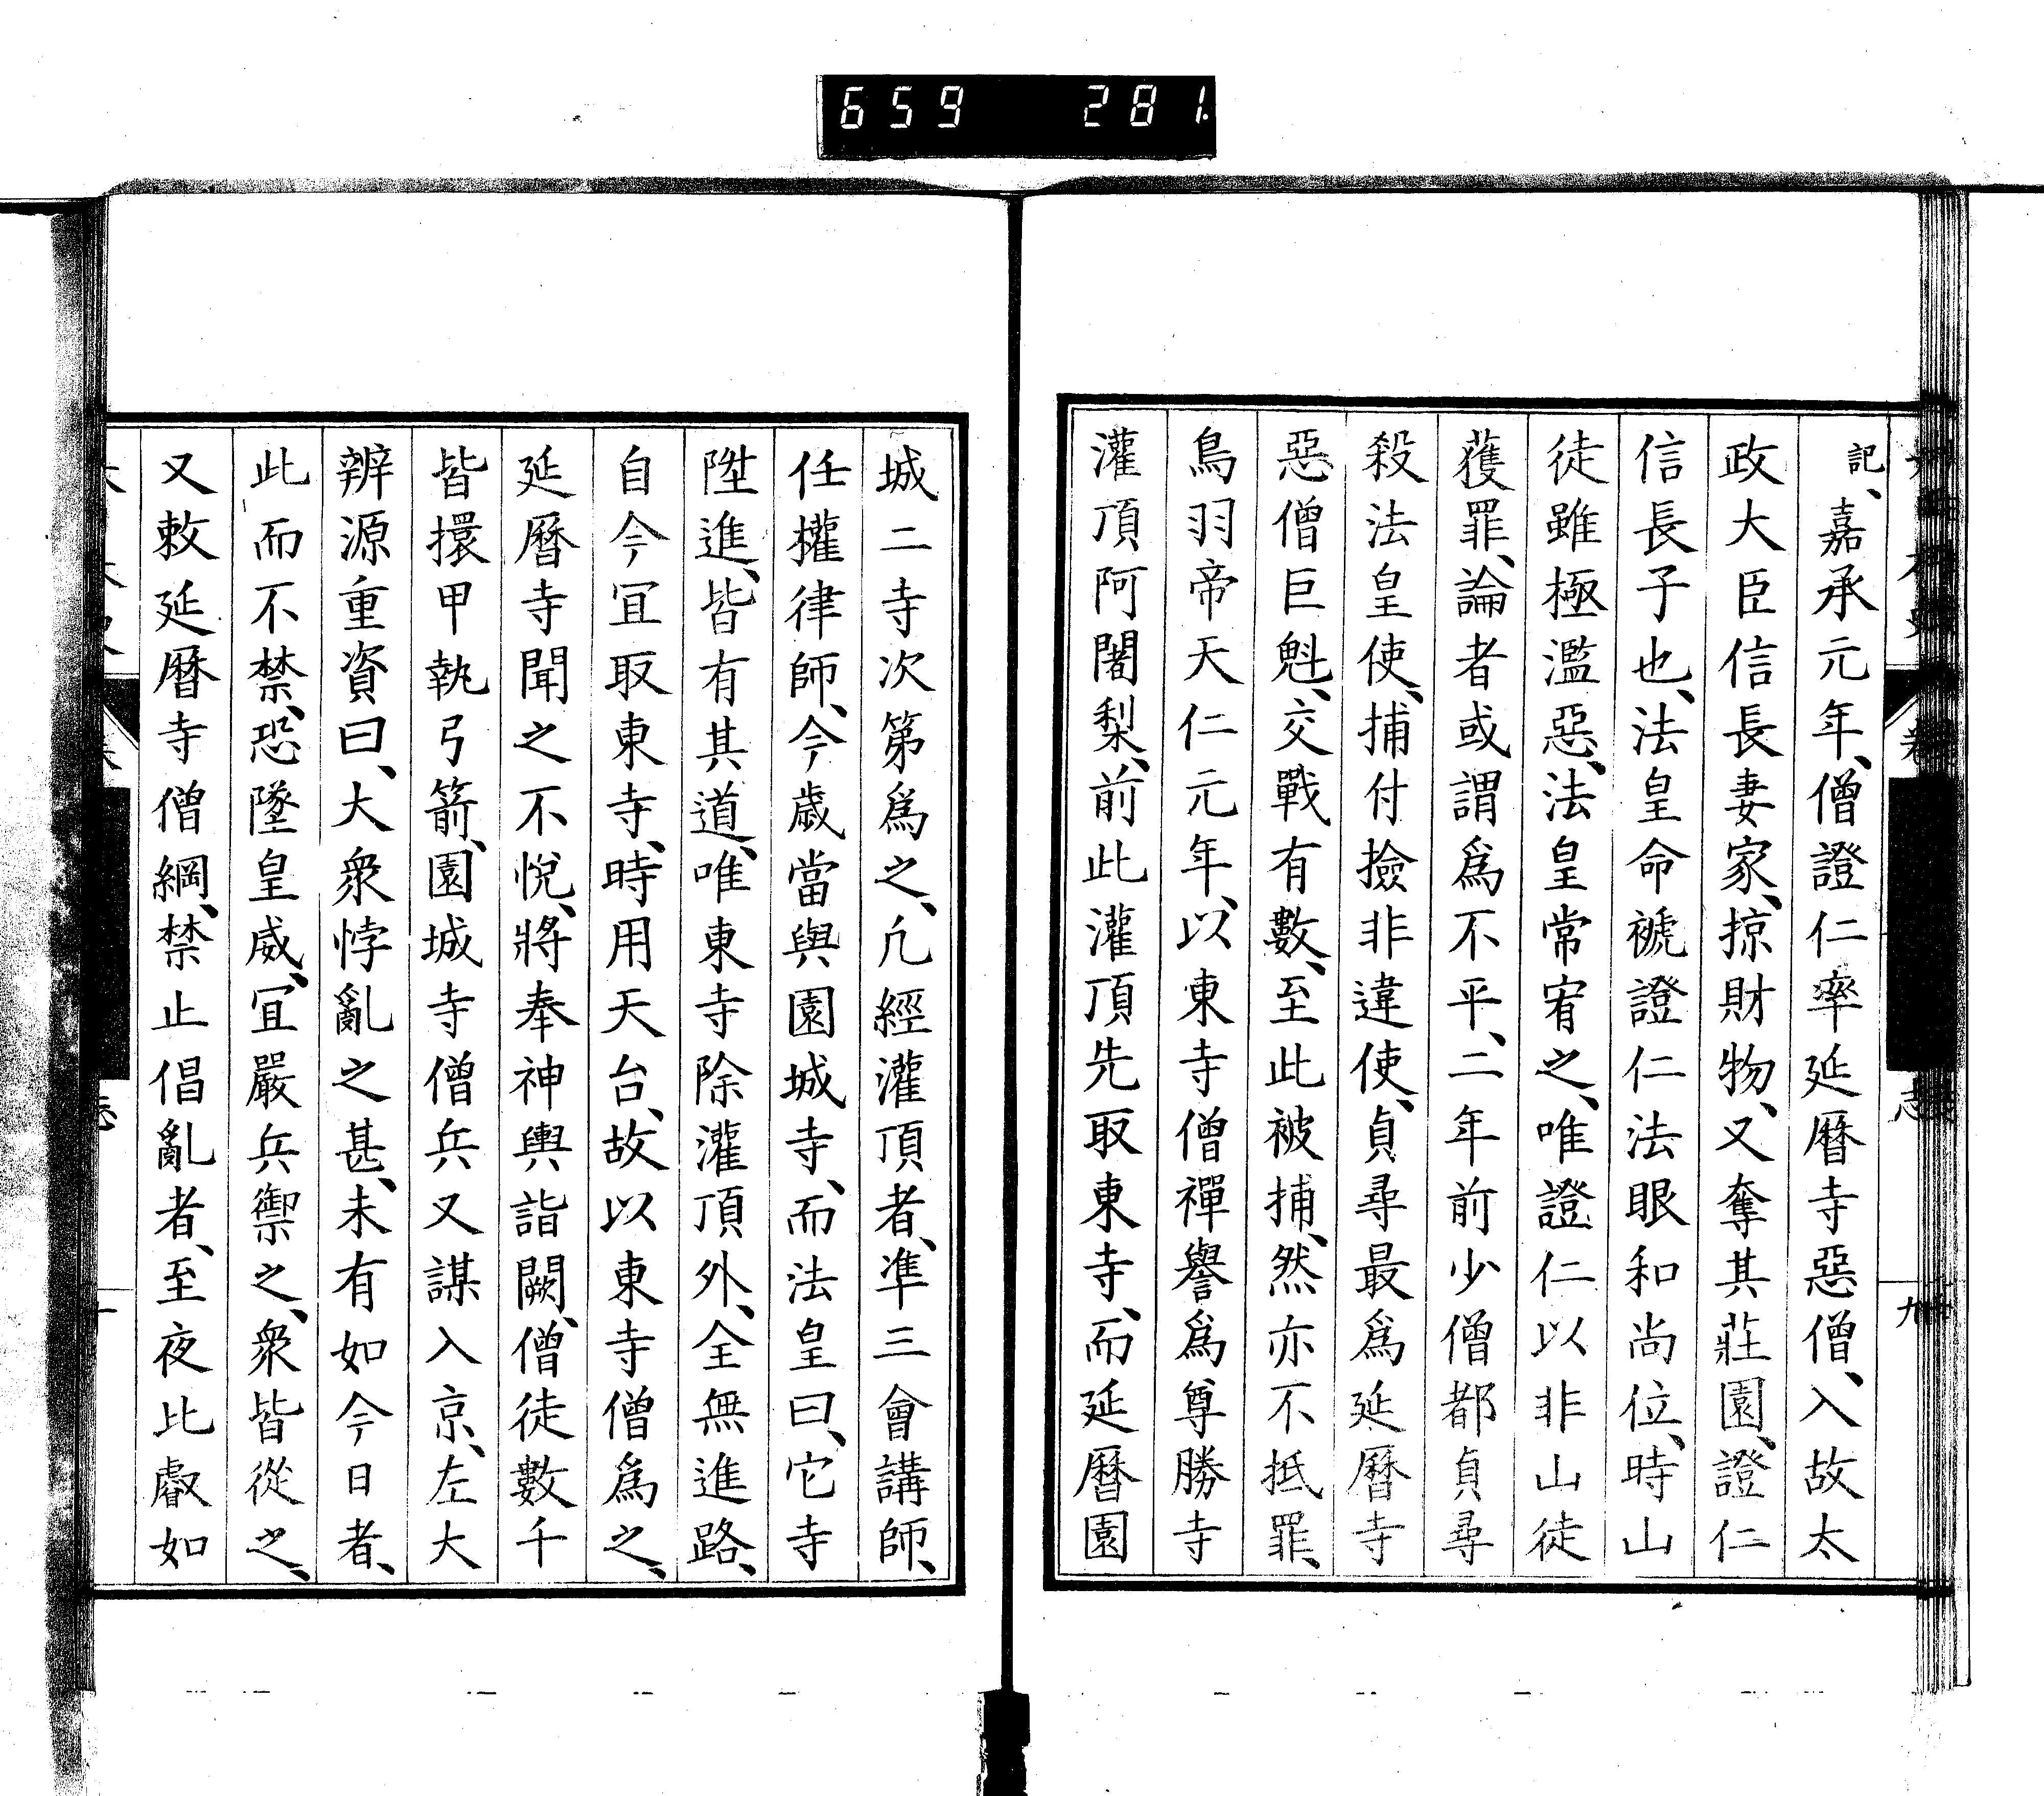 659 281.
記、嘉承元年、僧證仁率延曆寺惡僧、入故太
政大臣信長妻家、掠財物、又奪其莊園、證仁
信長子也、法皇命褫證仁法眼和尚位、時山
徒雖極濫惡、法皇常宥之、唯證仁以非山徒
獲罪、論者或謂爲不平、二年前少僧都貞尋
殺法皇使、捕付撿非違使、貞尋最爲延曆寺
惡僧巨魁、交戰有數、至此被捕、然亦不抵罪、
鳥羽帝天仁元年、以東寺僧禪譽爲尊勝寺
灌頂阿闍梨、前此灌頂先取東寺、而延曆園
城二寺次第爲之、凢經灌頂者、準三會講師、
任權律師、今歲當與園城寺、而法皇曰、它寺
陞進、皆有其道、唯東寺除灌頂外、全無進路、
自今宜取東寺、時用天台、故以東寺僧爲之、
延曆寺聞之不悅、將奉神輿詣闕、僧徒數千
皆擐甲執弓箭、園城寺僧兵又謀入京、左大
辨源重資曰、大衆悖亂之甚、未有如今日者、
此而不禁、恐墜皇威、宜嚴兵禦之、衆皆從之、
又敕延曆寺僧綱、禁止倡亂者、至夜比叡如